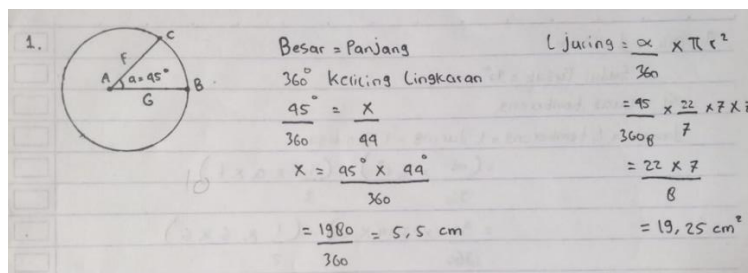 1.
C
F
A a = 45° B
G
Besar = Panjang
360° Keliling Lingkaran
45° / 360 = x / 44
x = 45° x 44° / 360
= 1980 / 360 = 5,5 cm
L juring = α / 360 x π r²
= 45 / 360 8 x 22 / 7 x 7 x 7
= 22 x 7 / 8
= 19,25 cm²